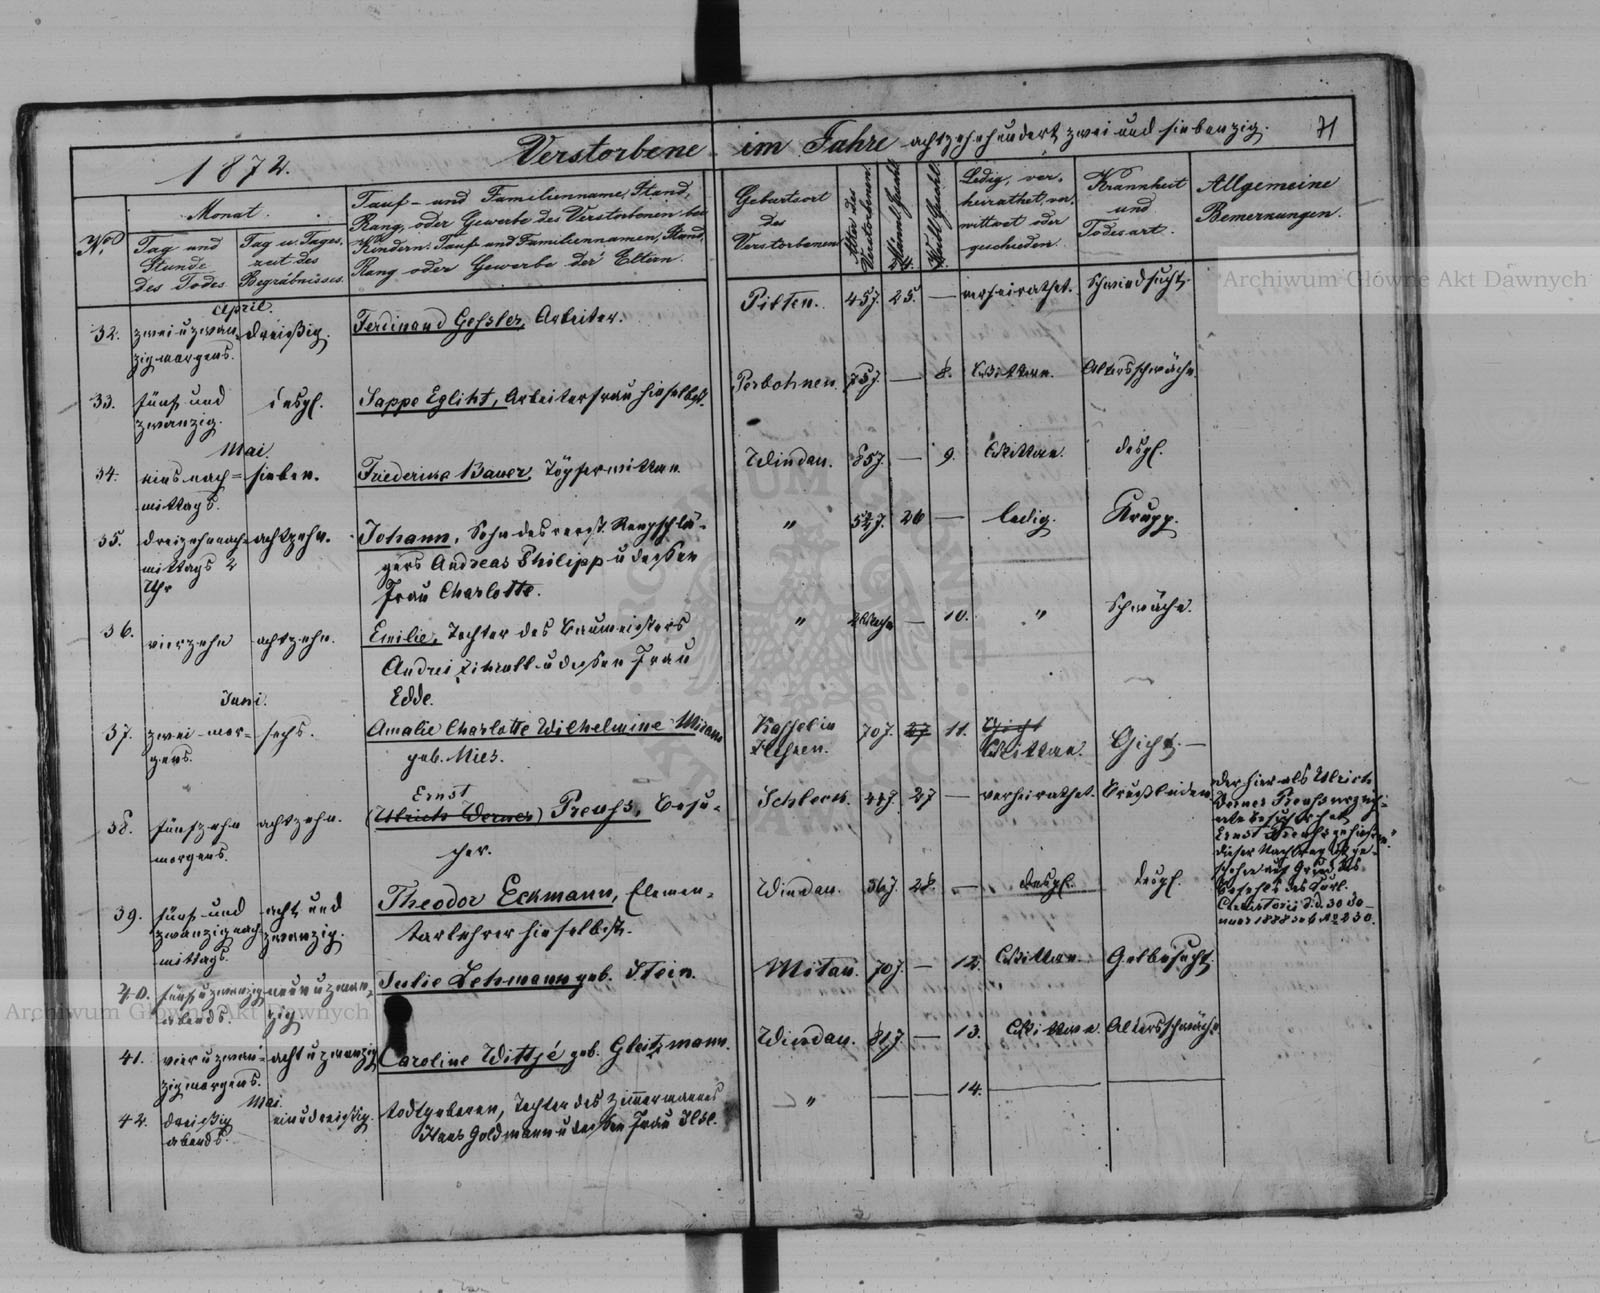 Verstorbene im Jahre achtzehnhundert zwei und siebenzig.
71
1872.
No
Monat.
Tag und
Stunde
des Todes
Tag u. Tages,
zeit des
Begräbnisses.
Tauf- und Familienname, Stand,
Rang, oder Gewerbe des Verstorbenen bei
Kindern: Tauf und Familiennamen, Stand,
Rang oder Gewerbe der Eltern.
Geburtsort
des
Verstorbenen
Alter des
Verstorbenen
Männl. Geschl.
Weibl. Geschl.
Ledig, ver-
heirathet, ver,
wittwet oder
geschieden.
Krankheit
und
Todesart.
Allgemeine
Bemerkungen.
April.
32.
zwei u zwan,
zig morgens.
dreißig.
Ferdinand Gessler, Arbeiter.
Pilten. 45 J. 25. — verheirathet. Schwindsucht.
33.
fünf und
zwanzig.
desgl.
Sappe Egliht, Arbeiterfrau hieselbst.
75 J. — 8. Wittwe. Altersschwäche.
Mai.
34.
eins nach=
mittags.
sieben.
Friederike Bauer, Töpferwittwe.
Windau. 85 J. — 9. Wittwe. desgl.
35.
dreizehn nach=
mittags 2
Uhr
achtzehn.
Johann, Sohn des verst. Reepschlä-
gers Andreas Philipp u dessen
Frau Charlotte.
" 26 — ledig. Krupp.
36.
vierzehn
achtzehn.
Emilie, Tochter des Baumeisters
Andrei u dessen Frau
Edde.
" — 10. " Schwäche.
Juni.
37.
zwei mor=
gens.
sechs.
Amalie Charlotte Wilhelmine
geb. Mies.
Kassel in
Hessen.
70 J. 27 11. Gicht
Wittwe. Gicht. —
38.
fünfzehn
morgens.
achtzehn.
Ernst
(Ulrich Werner) Preuss, Besu-
cher.
Schleck. 27 — verheirathet. Brustleiden
der hier als Ulrich
Werner Preuss verzeich-
nete Besucher hat
Ernst Preuss geheißen."
dieser Nachtrag ist ge-
schehen auf Grund des
Befehls des Kurl.
Consistorii d.d. 30 Ja-
nuar 1888 sub No 230.
39.
fünf und
zwanzig nach
mittags.
acht und
zwanzig.
Theodor Eckmann, Elemen,
tarlehrer hieselbst.
Windau. 36 J. 28. — desgl. desgl.
40.
fünf u zwanzig
abends.
neun u zwan,
zig
Julie Lehmann geb. Stein.
Mitau. 70 J. — 12. Wittwe. Gelbsucht.
41.
vier u zwan=
zig morgens.
acht u zwanzig
Caroline Wittjé geb. Gleitzmann.
Windau. 81 J. — 13. Wittwe. Altersschwäche
Mai.
42.
dreißig
abends.
ein u dreißig.
todtgeboren, Tochter des Zimmermannes
Hans Goldmann u dessen Frau Ilse.
" — — 14. — —
Archiwum Główne Akt Dawnych
Archiwum Główne Akt Dawnych
ARCHIWUM GŁÓWNE AKT DAWNYCH